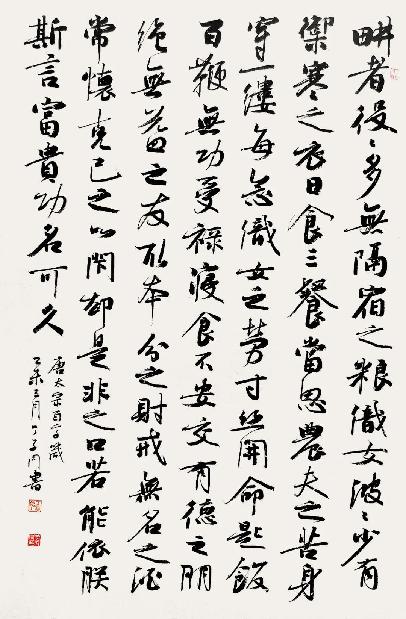 畊者役〻多無隔宿之粮織女波〻少有
禦寒之衣日食三餐當思農夫之苦身
穿一縷每念織女之勞寸絲開命匙飯
百鞭無功受禄寢食不安交有德之朋
絶無益之友取本分之財戒無名之酒
常懷克己之心閉却是非之口若能依朕
斯言富貴功名可久
唐太宗百字箴
乙未五月丁子書